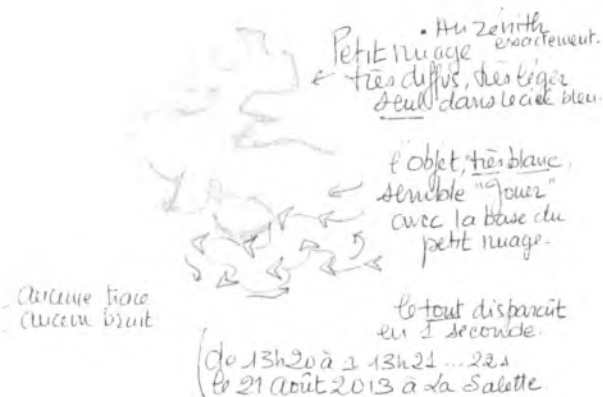 • Au zénith
exactement.
Petit nuage
très diffus, très léger
seul dans le ciel bleu.
l'objet, très blanc,
semble "jouer"
avec la base du
petit nuage.
- aucune trace
- aucun bruit
le tout disparaît
en 1 seconde.
(de 13h20 à 13h21...22
le 21 août 2013 à La Salette